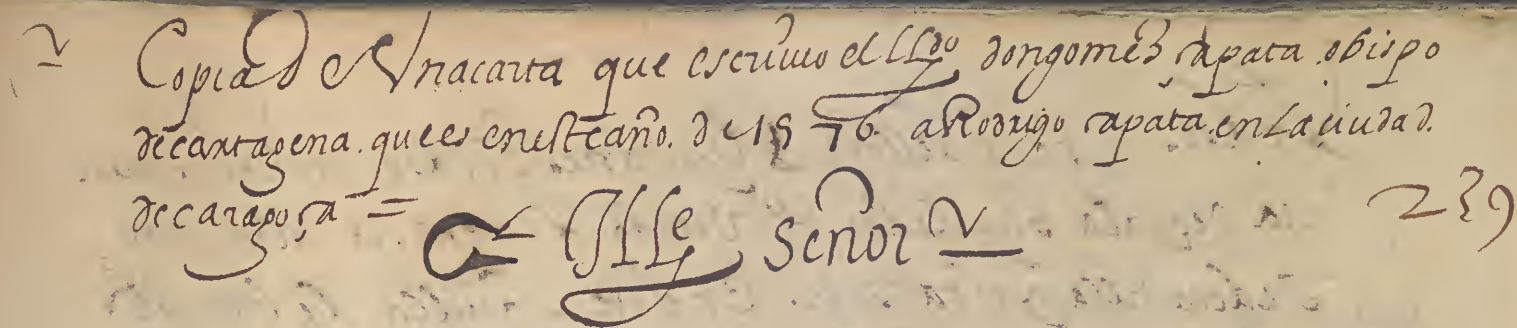 Copia de Una carta que escriuio el Ill.do don gomez çapata obispo
de cartagena. que es en este año. de 1576. a Rodrigo çapata. en La ciudad.
de caragoça = Ill.e Señor
239